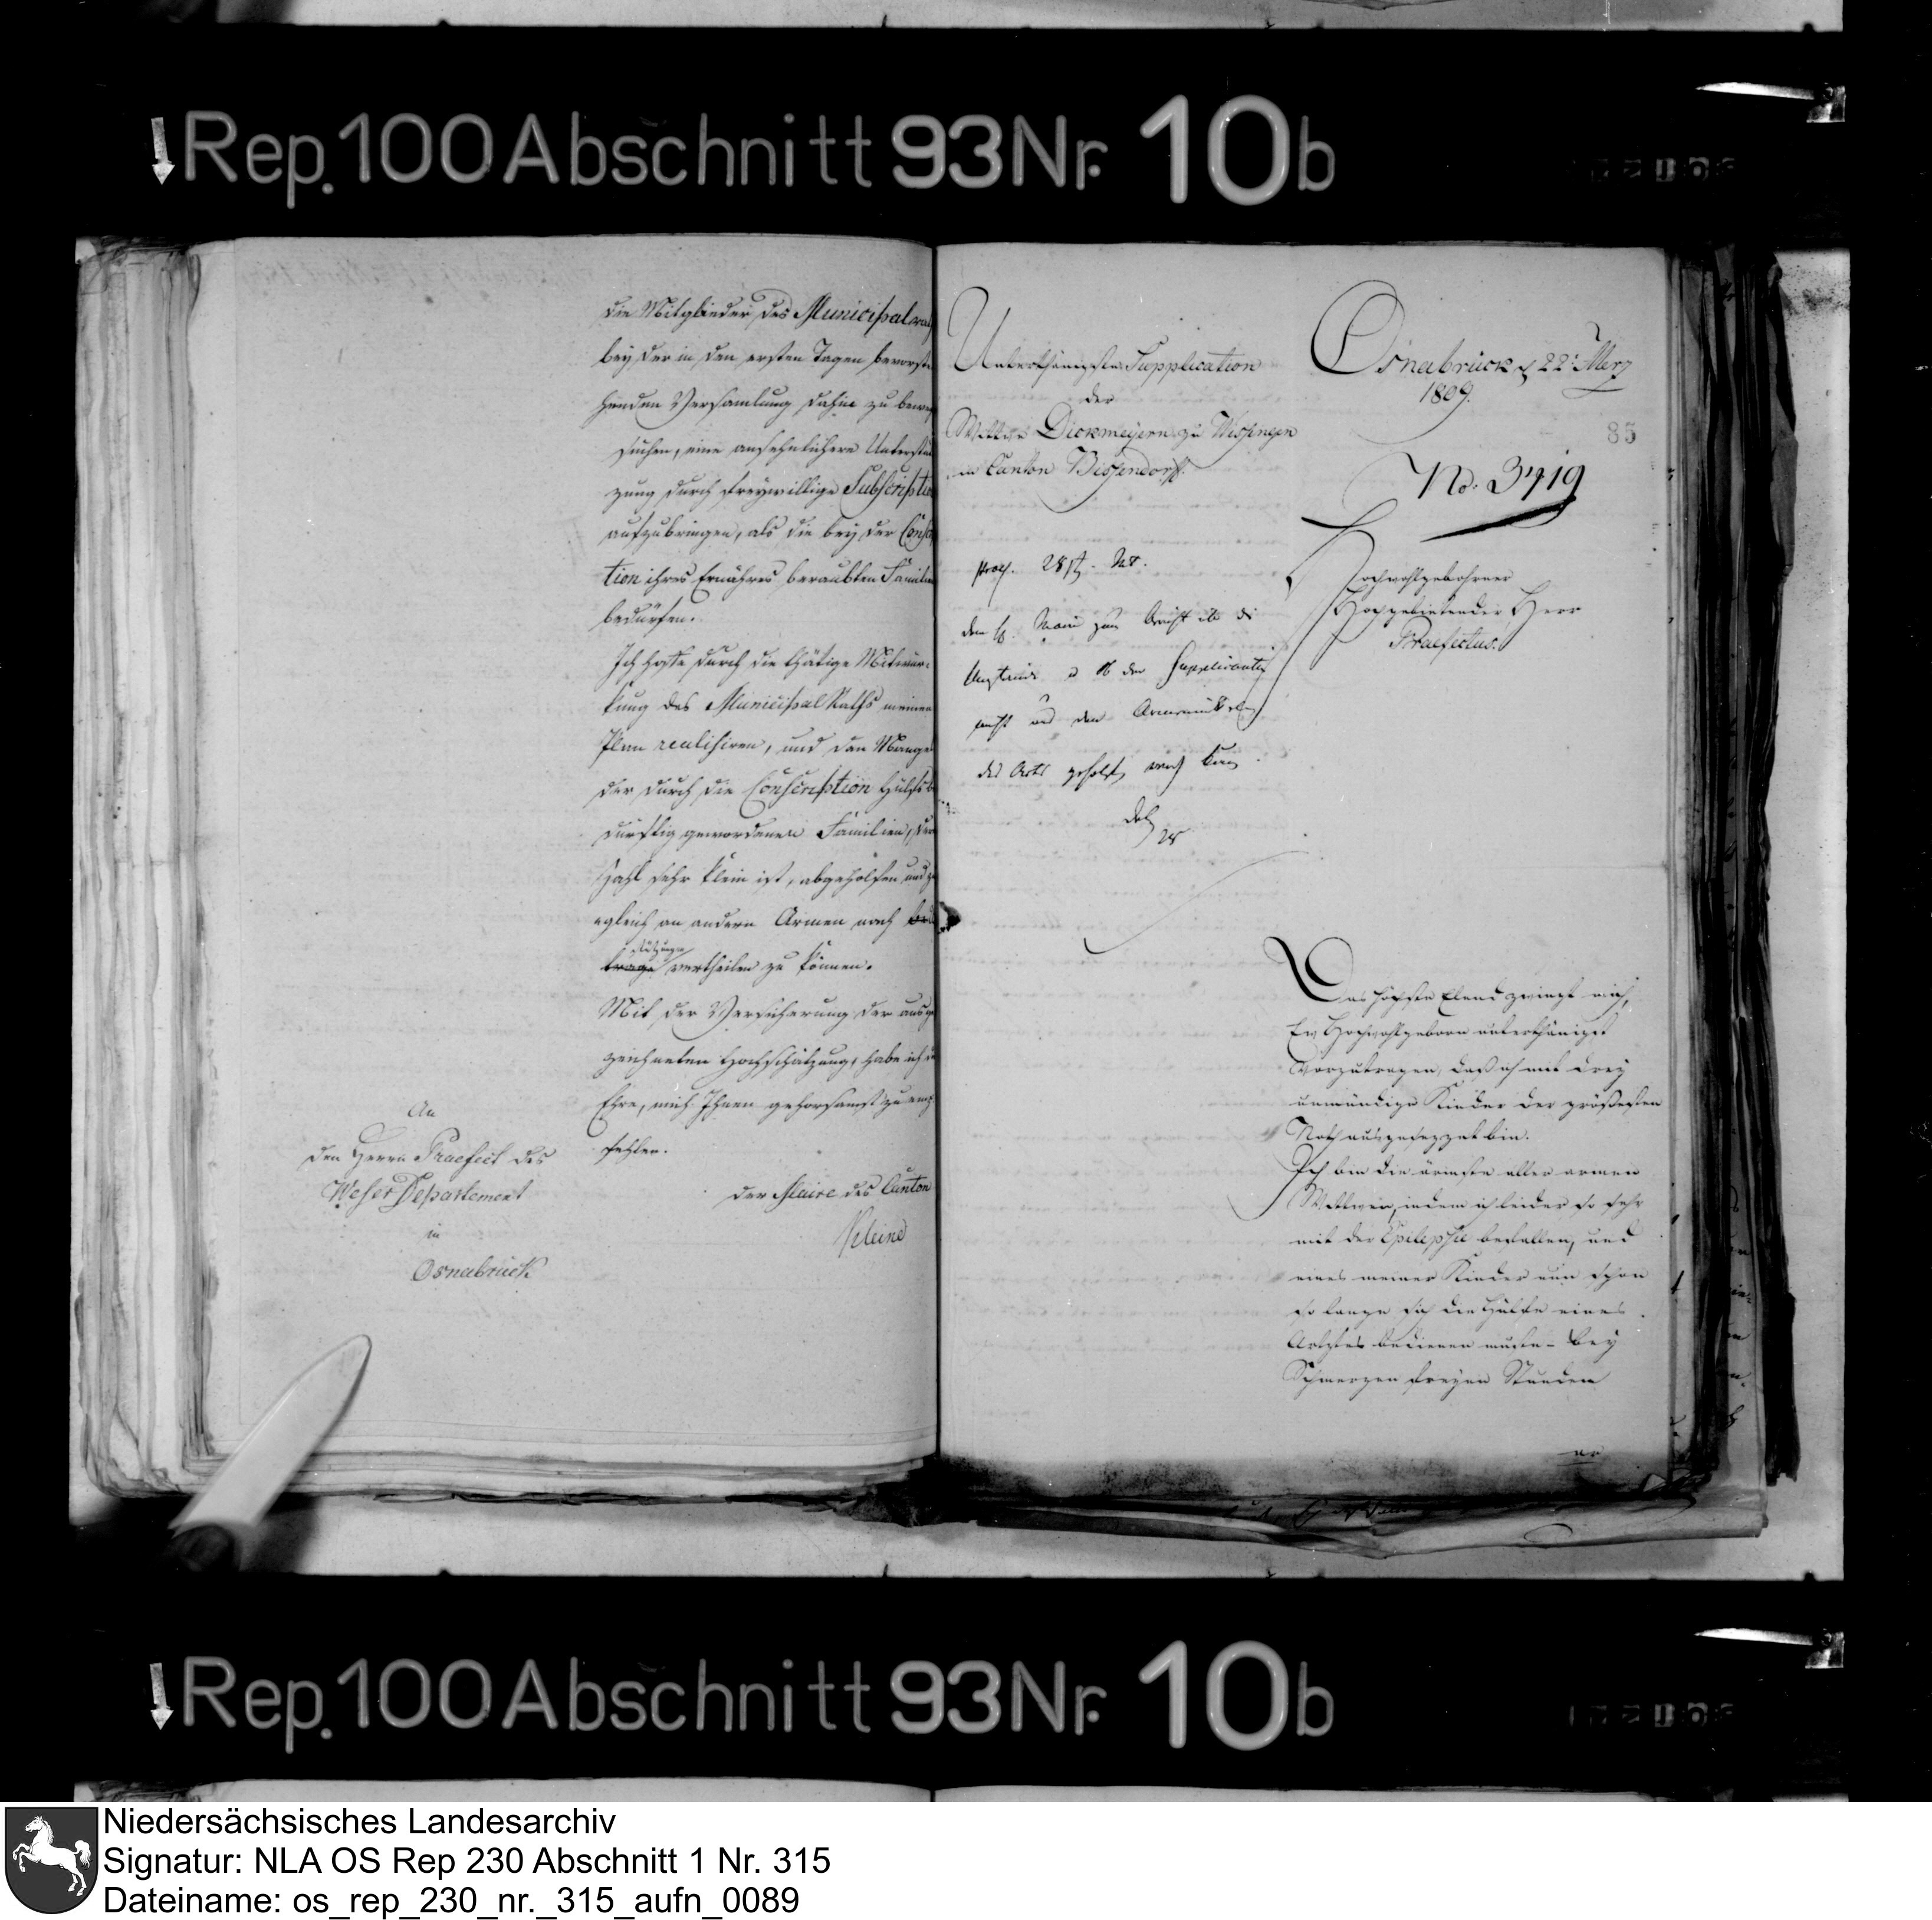 Rep. 100 Abschnitt 93 Nr. 10b
die Mitglieder des Municipalrat
bey der in den ersten Tagen bevorste
henden Versamlung dahin zu bewe
suchen, eine ansehnlichere Unterstü
zung durch freywillige Subscriptio
aufzubringen, als die bey der Conscr
tion ihres Ernährers beraubten Familie
bedürfen.
Ich hoffe durch die thätige Mitwür-
kung des Municipal Raths meinen
Plan realisiren, und dem Mangel
der durch die Conscription hülfsbe
dürftig gewordenen Familien, der
Zahl sehr klein ist, abgeholfen und zu
gleich an andern Armen noch
vertheilen zu können.
Mit der Versicherung der ausge
zeichneten Hochschätzung, habe ich d
Ehre, mich Ihnen gehorsamst zu emp
fehlen.
der Maire des Canton
Kleine
An
den Herrn Praefect des
Weser Departement
in
Osnabrück
Unterthänigste Supplication
der
Wittwe Dickmeyern zu Wissingen
in Canton Bissendorf.
Osnabrück d 22t Merz
1809.
85
No. 3419
praes. 28
dem H. Maire zum Bericht üb. die
Umstände u ob der Supplicantin
nicht aus den Armenmitteln
des Orts geholfen werden kann.
28
Hochwohlgebohrner
Hochgebietender Herr
Praefectus.
Das höchste Elend zwingt mich,
Ew. Hochwohlgeborn unterthänigst
vorzutragen, daß ich mit drey
unmündige Kinder der größesten
Noth ausgesezzet bin.
Ich bin die ärmste aller armen
Wittwen, indem ich leider so sehr
mit der Epilepsie befallen, und
eines meiner Kinder nun schon
so lange sich die Hülfe eines
Artztes bedienen muste - bey
Schmerzen freyen Stunden
Rep. 100 Abschnitt 93 Nr. 10b
Niedersächsisches Landesarchiv
Signatur: NLA OS Rep 230 Abschnitt 1 Nr. 315
Dateiname: os_rep_230_nr._315_aufn_0089